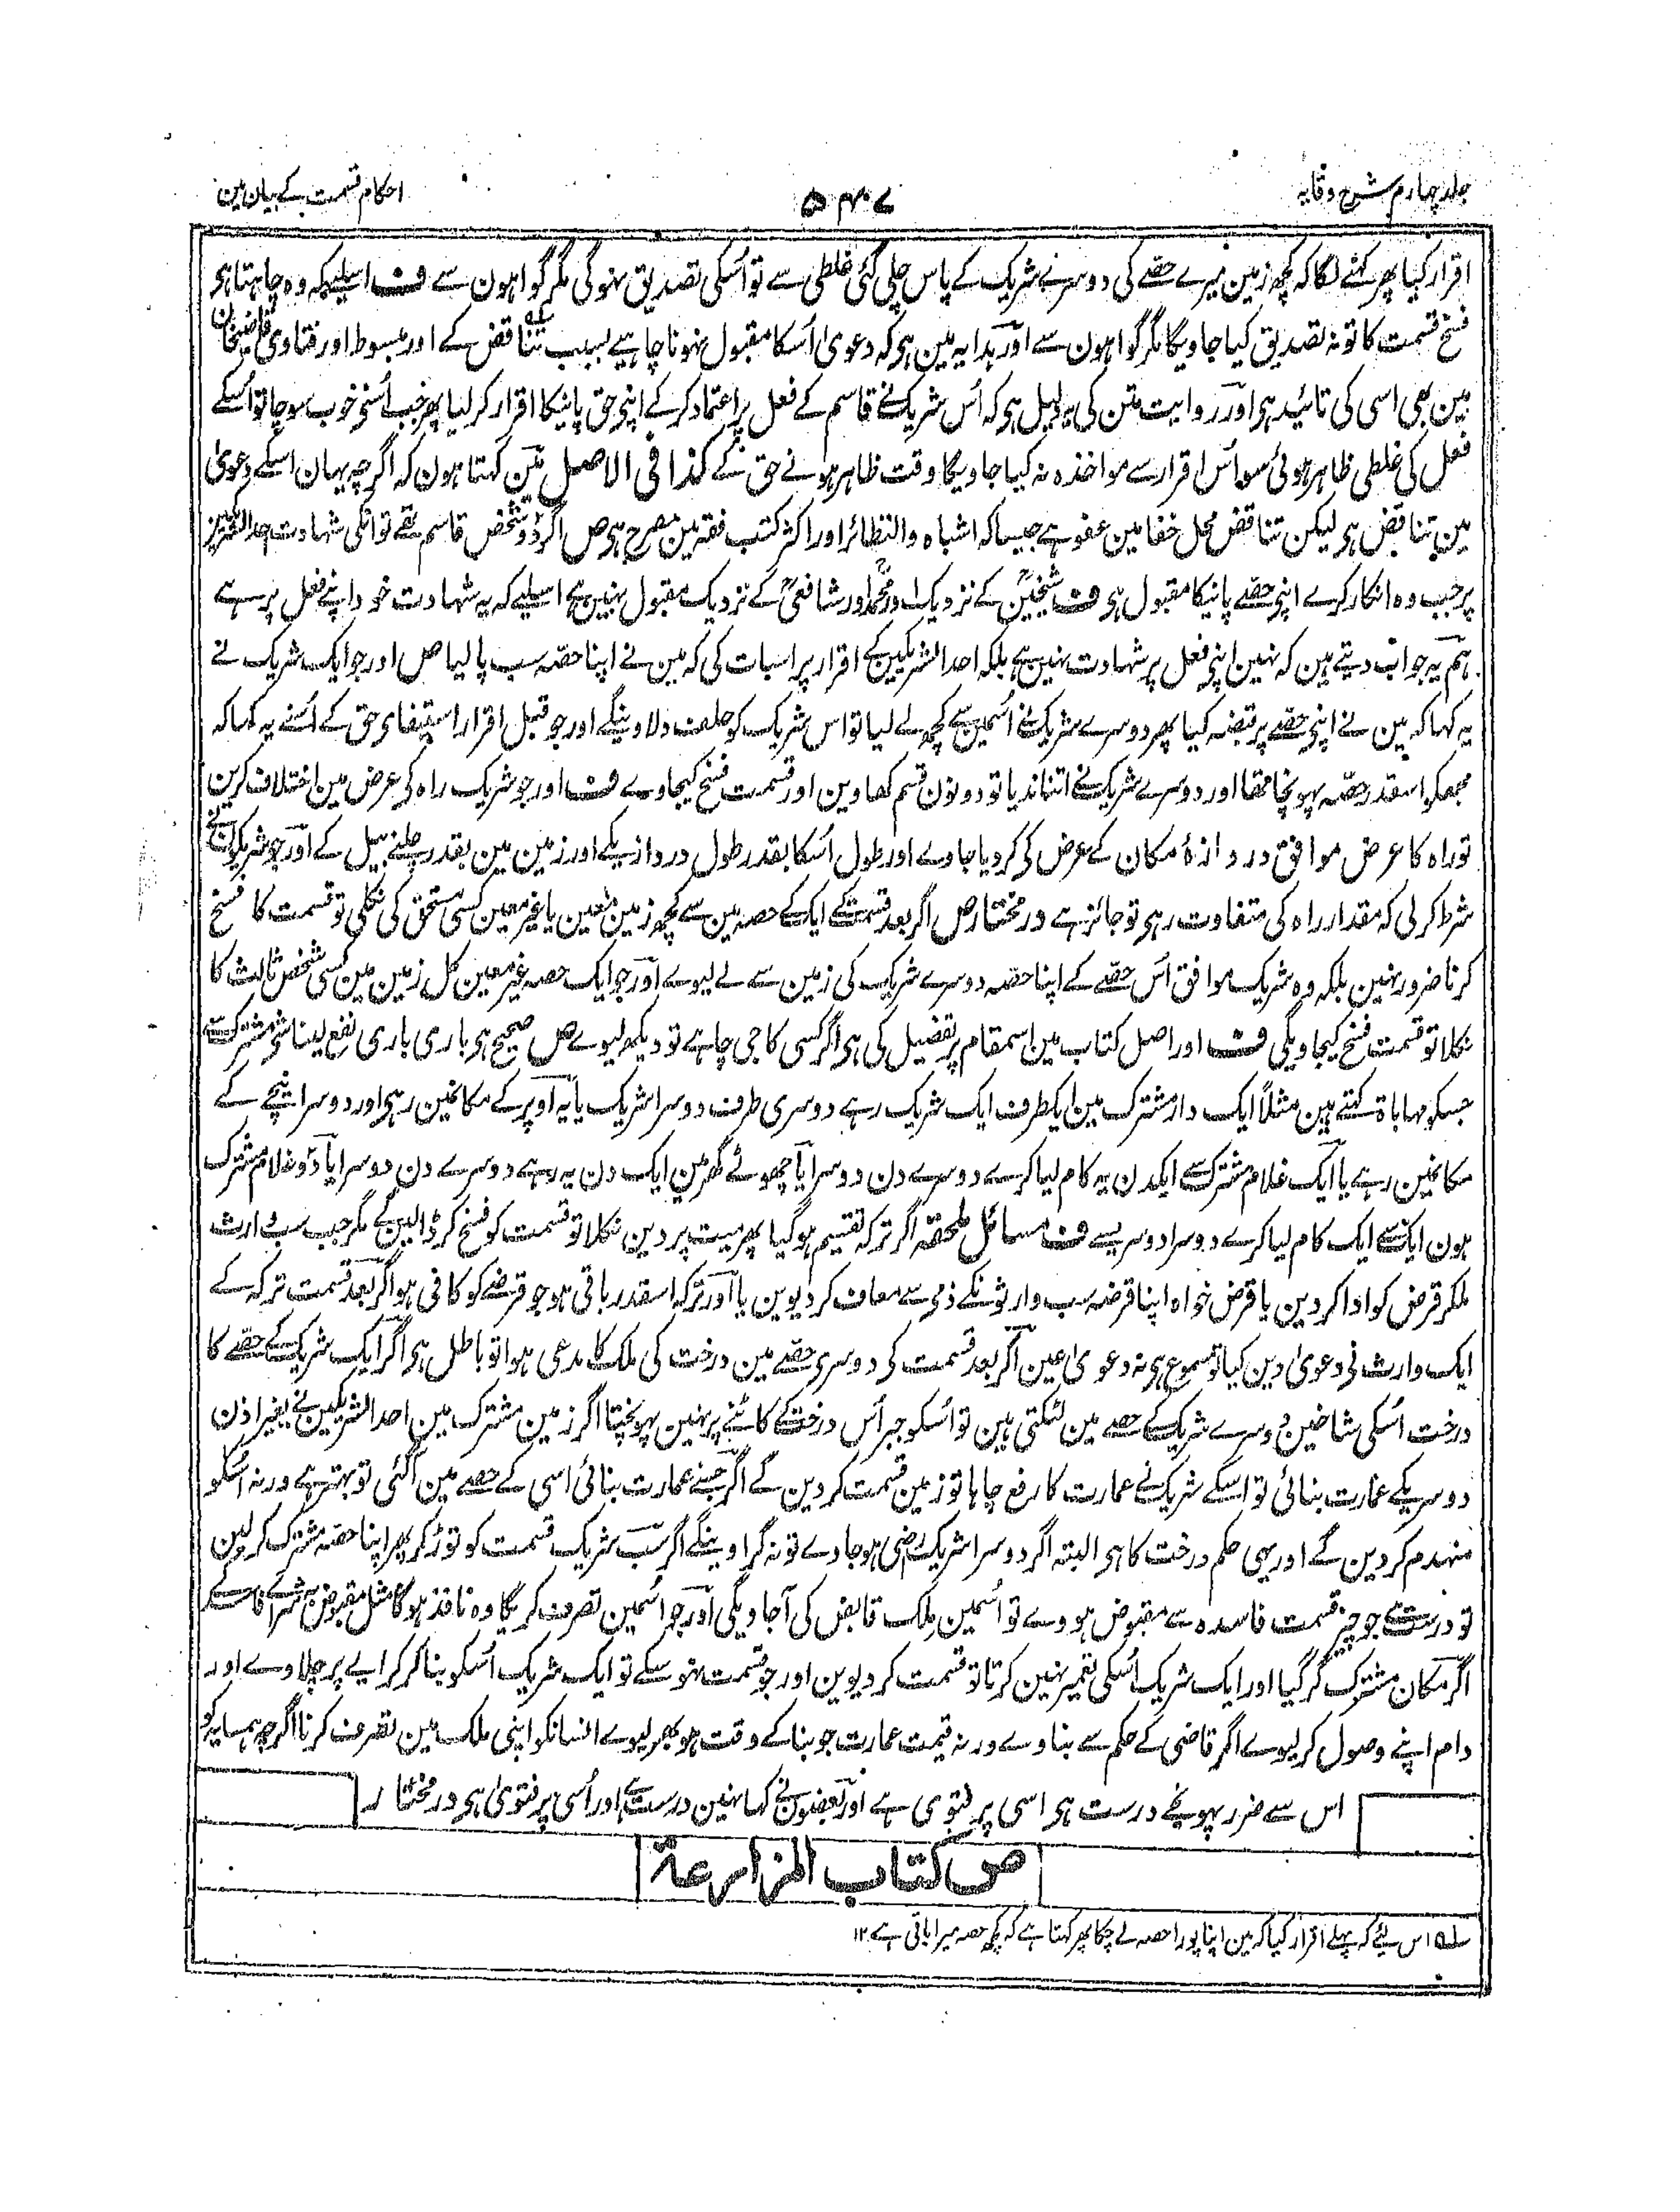 جلد چہارم شرح وقایہ
۵۴۰۷
احکام قسمت کے بیان مین
اقرار کیا پھر کہنے لگا کہ کچھ زمین میرے حصے کی دوسرے شریک کے پاس چلی گئی غلطی سے تو اُسکی تصدیق نہوگی مگر گواہون سے ف اسلیے کہ وہ چاہتا ہی
فسخ قسمت کا تو نہ تصدیق کیا جاویگا مگر گواہون سے اور ہدایہ مین ہی کہ دعویٰ اُسکا مقبول نہونا چاہیے بسبب تناقض کے اور مبسوط اور فتاوی قاضیخان
مین بھی اسی کی تائید ہی اور روایت متن کی یہ دلیل ہی کہ اُس شریک نے قاسم کے فعل پر اعتماد کرکے اپنی حق پانیکا اقرار کرلیا پھر جب اُسنی خوب سوچا تو اُسکے
فعل کی غلطی ظاہر ہوئی سو اُس اقرار سے مواخذہ نہ کیا جاویگا وقت ظاہر ہونے حق کے کذا فی الاصل مین کہتا ہون کہ اگرچہ یہان اسکے دعویٰ
مین تناقض ہی لیکن تناقض محل خفا مین عفو ہے جیسا کہ اشباہ والنظائر اور اکثر کتب فقہ مین مصرح ہی ص اگر دو شخص قاسم تھے تو انکی شہادت احدالشریکین
پر جب وہ انکار کرے اپنی حصے پانیکا مقبول ہی ف شیخین کے نزدیک اور محمد اور شافعی کے نزدیک مقبول نہین ہے اسلیے کہ یہ شہادت خود اپنے فعل پر ہے
ہم یہ جواب دیتے ہین کہ نہین اپنی فعل پر شہادت نہین ہے بلکہ احدالشریکین کے اقرار پر اسبات کی کہ مین نے اپنا حصہ سب پا لیا ص اور جو ایک شریک نے
یہ کہا کہ مین نے اپنی حصے پر قبضہ کیا پھر دوسرے شریک نے اُسمین سے کچھ لے لیا تو اس شریک کو حلف دلاوینگے اور جو قبل اقرار استیفای حق کے اُسنے یہ کہا کہ
مجھکو اسقدر حصہ پہونچا تھا اور دوسرے شریک نے اتنا ندیا تو دونون قسم کھاوین اور قسمت فسخ کیجاوے ف اور جو شریک راہ کی عرض مین اختلاف کرین
تو راہ کا عرض موافق دروازۂ مکان کے عرض کی کردیا جاوے اور طول اُسکا بقدر طول دروازیکے اور زمین مین بقدر چلنے بیل کے اور جو شریکون نے
شرط کرلی کہ مقدار راہ کی متفاوت رہی تو جائز ہے درمختار ص اگر بعد قسمت کے ایک کے حصہ مین سے کچھ زمین معین یا غیر معین کسی مستحق کی نکلی تو قسمت کا فسخ
کرنا ضرور نہین بلکہ وہ شریک موافق اُس حصے کے اپنا حصہ دوسرے شریک کی زمین سے لے لیوے اور جو ایک حصہ غیر معین کل زمین مین کسی شخص ثالث کا
نکلا تو قسمت فسخ کیجاویگی ف اور اصل کتاب مین اسمقام پر تفصیل کی ہی اگر کسی کا جی چاہے تو دیکھ لیوے ص صحیح ہی باری باری نفع لینا شی مشترک سے
جسکو مہایاة کہتے ہین مثلاً ایک دار مشترک مین ایکطرف ایک شریک رہے دوسری طرف دوسرا شریک یا یہ اوپر کے مکانمین رہی اور دوسرا نیچے کے
مکانمین رہے یا ایک غلام مشترک سے ایکدن یہ کام لیا کرے دوسرے دن دوسرا یا چھوٹے گھر مین ایک دن یہ رہے دوسرے دن دوسرا یا دو غلام مشترک
ہون ایک سے ایک کام لیا کرے دوسرا دوسریسے ف مسائل ملحقہ اگر ترکہ تقسیم ہوگیا پھر میت پر دین نکلا تو قسمت کو فسخ کر ڈالین گے مگر جب سب وارث
ملکر قرض کو ادا کردین یا قرض خواہ اپنا قرضہ سب وارثونکے ذمی سے معاف کردیوین یا اور ترکہ اسقدر باقی ہو جو قرضے کو کافی ہو اگر بعد قسمت ترکہ کے
ایک وارث نی دعویٰ دین کیا تو مسموع ہی نہ دعویٰ عین اگر بعد قسمت کی دوسری حصے مین درخت کی ملک کا مدعی ہوا تو باطل ہی اگر ایک شریک کے حصے کا
درخت اُسکی شاخین دوسرے شریک کے حصہ مین لٹکتی ہین تو اُسکو جبر اُس درخت کے کاٹنے پر نہین پہونچتا اگر زمین مشترک مین احدالشریکین نے بغیر اذن
دوسریکے عمارت بنائی تو اسکے شریک نے عمارت کا رفع چاہا تو زمین قسمت کردین گے اگر جسنے عمارت بنائی اسی کے حصہ مین آگئی تو بہتر ہے ورنہ اُسکو
منہدم کردین گے اور یہی حکم درخت کا ہی البتہ اگر دوسرا شریک راضی ہوجاوے تو نہ گراوینگے اگر سب شریک قسمت کو توڑ کر پھر اپنا حصہ مشترک کرلین
تو درست ہے جو چیز قسمت فاسدہ سے مقبوض ہووے تو اُسمین ملک قابض کی آجاویگی اور جو اُسمین تصرف کریگا وہ نافذ ہوگا مثل مقبوض بہ شراے فاسد کے
اگر مکان مشترک گر گیا اور ایک شریک اُسکی تعمیر نہین کرتا تو قسمت کردیوین اور جو قسمت نہوسکے تو ایک شریک اُسکو بناکر کرایے پر چلاوے اور
دام اپنے وصول کرلیوے اگر قاضی کے حکم سے بناوے ورنہ قیمت عمارت جو بنا کے وقت ہو پھر لیوے انسانکو اپنی ملک مین تصرف کرنا اگرچہ ہمسایہ کو
اس سے ضرر پہونچے درست ہی اسی پر فتوی ہے اور بعضون نے کہا نہین درست ہے اور اُسی پر فتویٰ ہی درمختار
ص کتاب المزارعة
لہ اس لیئے کہ پہلے اقرار کیا کہ مین اپنا پورا حصہ لے چکا پھر کہتا ہے کہ کچھ حصہ میرا باقی ہے ۱۲